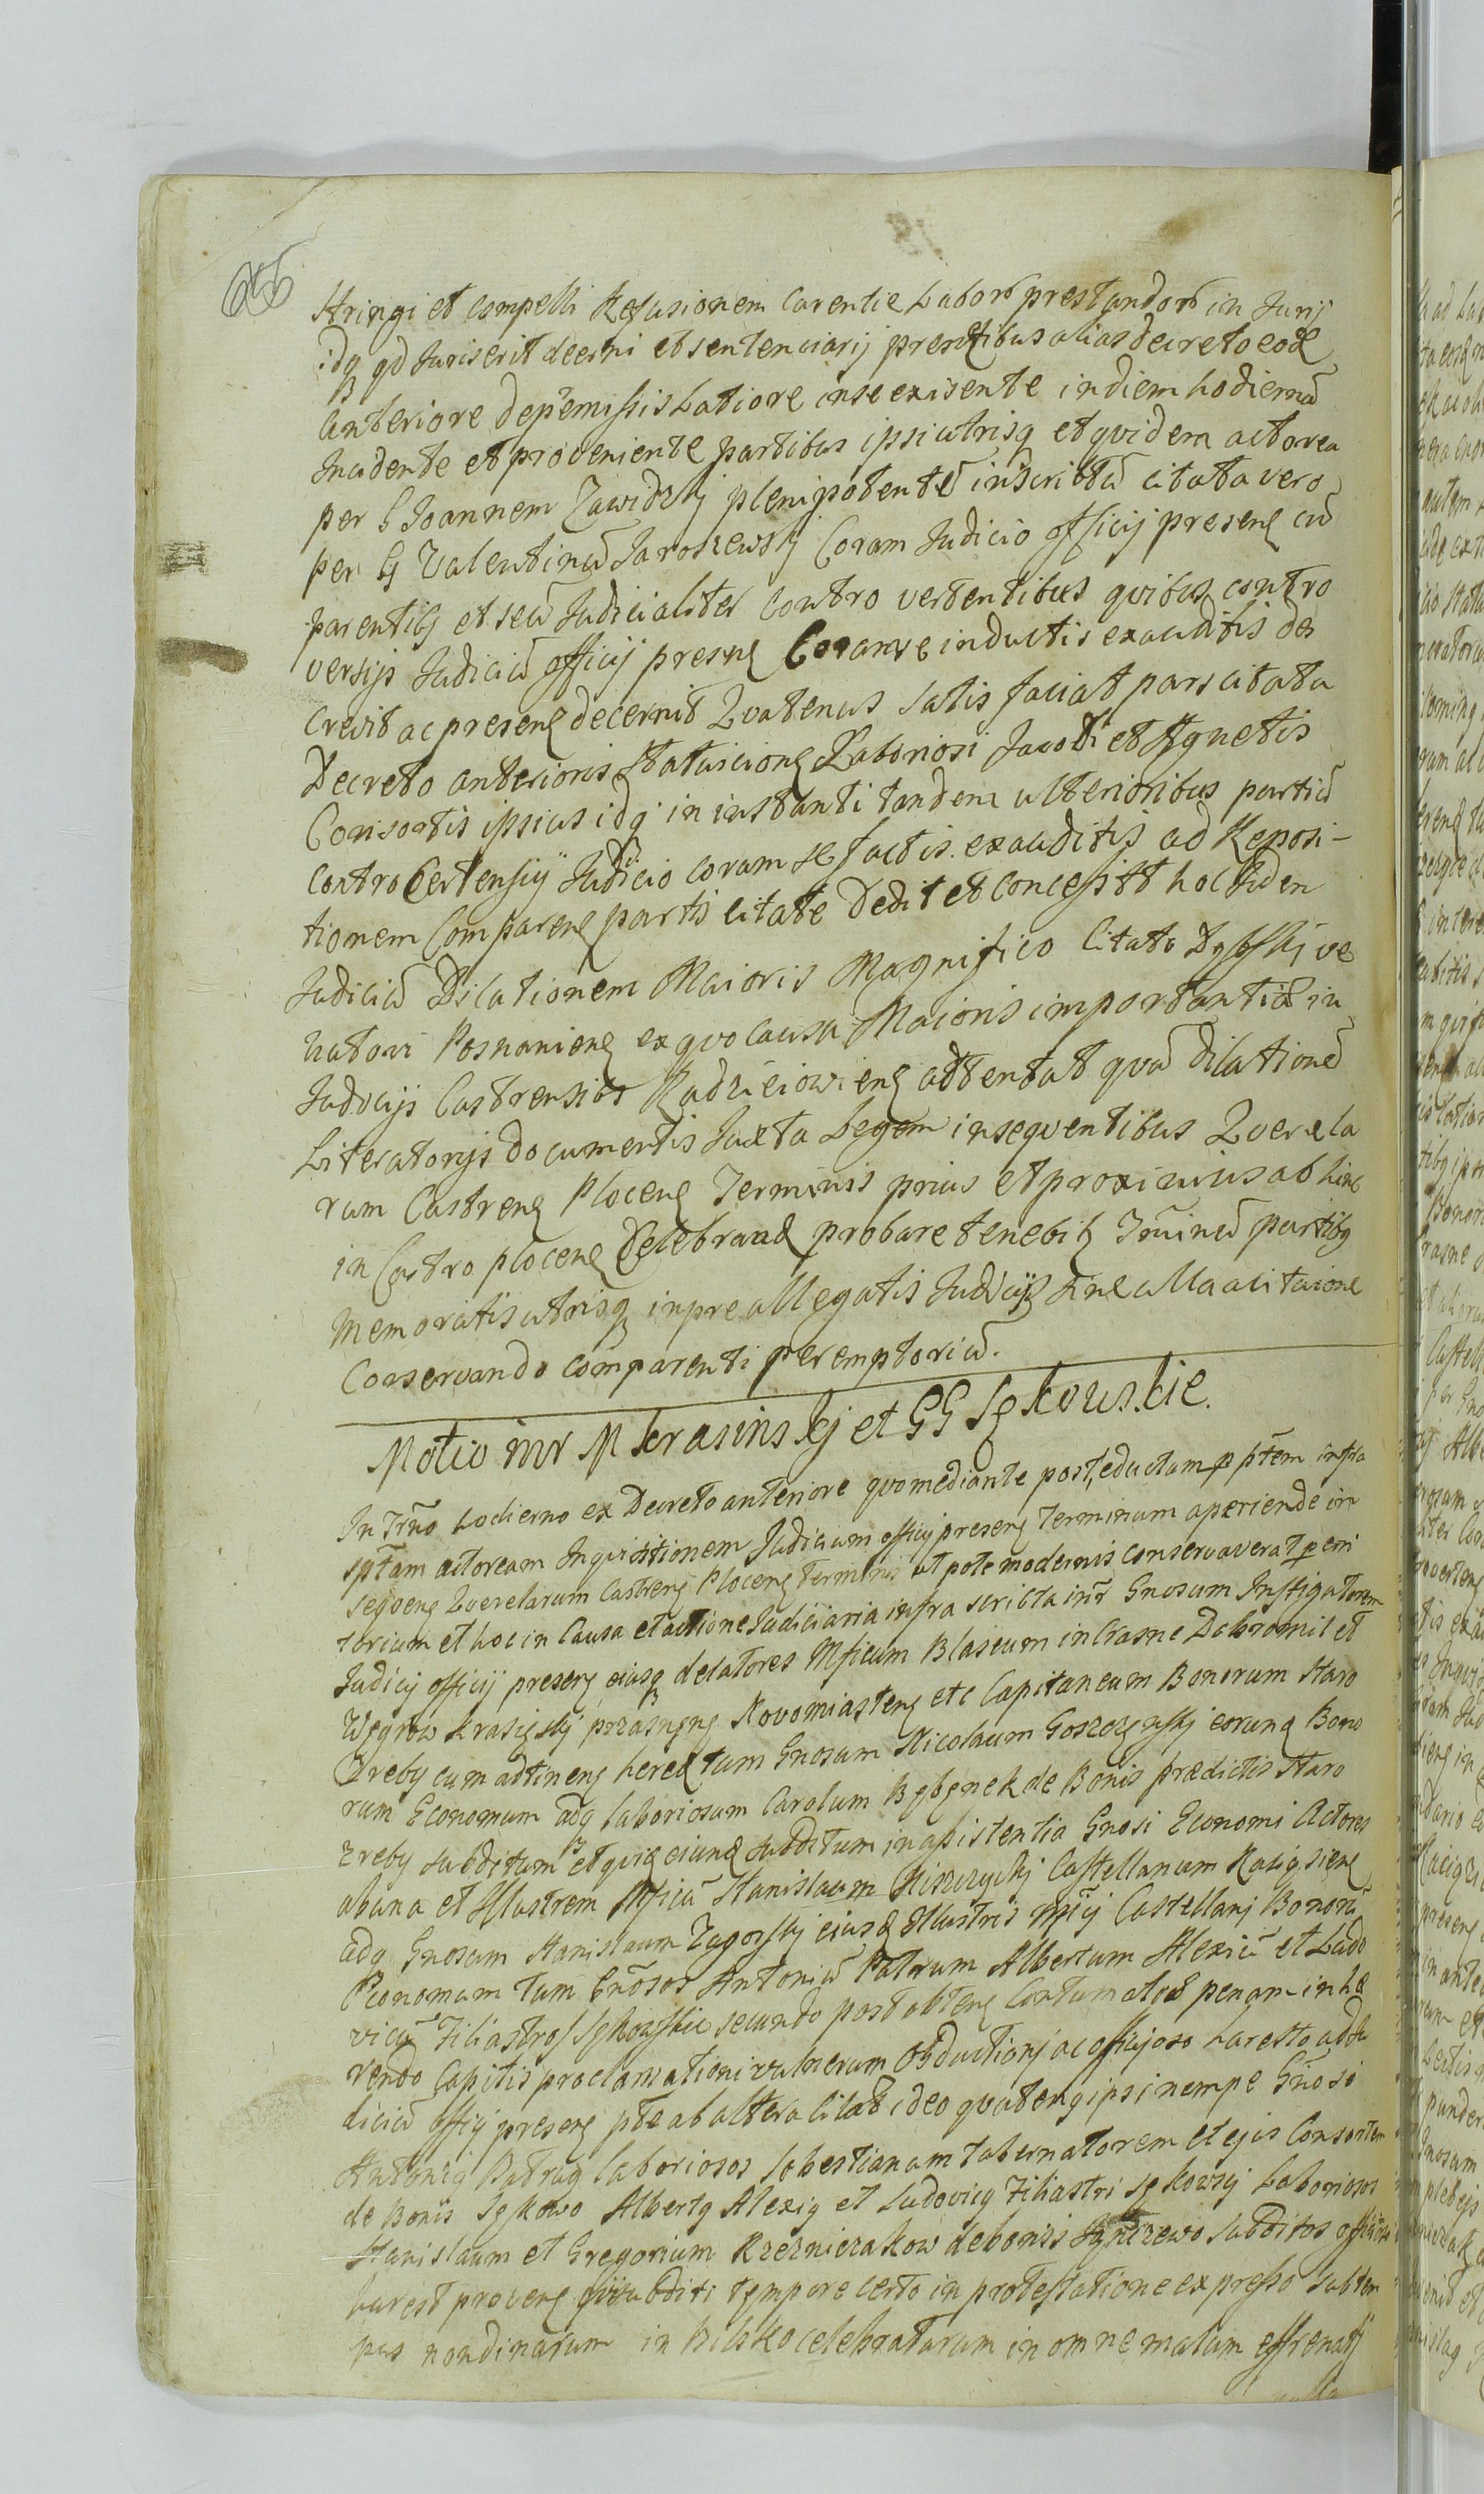 656
stringi et compelli Refusionem Carentie Labor prestandor in Jurij
idq qd Juris erit decerni et sentenciarij presentibus alias decreto eod
Anteriore depremissis Latiore inse existente in diem hodiernu
Incidente et proveniente partibus ipsis utrisq et quidem actorea
per G Joannem Zawidzkj plenipotentem inscriptu citata vero
per G Valentinu Jaroszewskj Coram Judicio officij presen cu
parentibg et seu Judicialiter Contro vertentibus quibus contro
versijs Judiciu officij presens Coram se inductis exauditis de
Crevit ac presens decernit Quatenus satis faciat pars citata
Decreto anterioris statuicione Laboriosi Jacobi et Agnetis
Consortis ipsius idq in instanti tandem ulterioribus partiu
Controvertensijs Judicio coram se factis exauditis ad Reposi-
tionem Comparen partis citate Dedit et Concessit hoc Iuden
Judiciu Dilationem Maioris Magnifico Citato Dąbskj ve
natori Posnanien ex quo Causa Maioris importantiæ in
Judicijs Castrensibs Radzieiowien attentat qua dilatione
Literatorijs documentis Juxta Legem insequentibus Querela
rum Castren Plocen Terminis prius et proximius ab hinc
in Castro plocen Celebrand probare tenebit Trminu partibg
Memoratis utrisq in preallegatis Judicijs sine ulla acitacione
Conservando comparenti peremptoriu.
Motio inr M Krasinskj et GG Sękowskie.
In Trno hodierno ex Decreto anteriore quo mediante post eductam p ptem infra
sptam actoream Inquisitionem Judicium officij presens Terminum aperiende in
sequen Querelarum Castren Plocen Terminis ut pote modernis conservaverat perem
torium et hoc in Causa et actione Judiciaria infra scripta inr Gnosum Instigatorem
Judicij officij presen eiusq delatores Mficum Blasium in Crasne Dobromil et
Węgrow Krasięskj przasnen Novomiasten etc Capitaneum Bonorum Staro
Zreby cum adtinen hered tum Gnosum Nicolaum Goszczenskj eorund Bono
rum Economum adq laboriosum Carolum Bębęnek de Bonis prædictis Staro
zreby subditum et eiund subditum in assistentia Gnosi Economi Actores
ab una et Illustrem Mficu Stanislaum Niszczyckj Castellanum Raciązien
adq Gnosum Stanislaum Zagorskj eiusd Illustris Mfci Castellanj Bonoru
Economum tum Gnosos Antoniu Patruum Albertum Alexiu et Ludo
vicu Filiastros Sękowskie secundo post obten Contumatiæ penam in hæ
rendo Capitis proclamationi vulnerum Obductionj ac officioso haresto ad Ju
diciu officij presens pte ab altera citat ideo quaten ipsi nempe Gnosi
Antonig Patrug laboriosos Sebestianum tabernatorem et ejus Consortem
de Bonis Sękowo Albertg Alexig et Ludovicg Filiastri Sękowscy Laboriosos
Stanislaum et Gregorium Krzeznierzakow debonis subditos officioso
harest proven qui subditi tempore certo in protestatione expresso sub tem
pus nondinarum in Bilsko celebratarum in omne malum effrenati